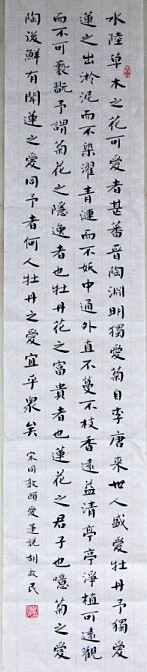 水陸草木之花可愛者甚蕃晉陶淵明獨愛菊自李唐來世人盛愛牡丹予獨愛
蓮之出淤泥而不染濯青漣而不妖中通外直不蔓不枝香遠益清亭亭淨植可遠觀
而不可褻翫予謂菊花之隱逸者也牡丹花之富貴者也蓮花之君子也噫菊之愛
陶後鮮有聞蓮之愛同予者何人牡丹之愛宜乎眾矣
宋周敦頤愛蓮說胡民